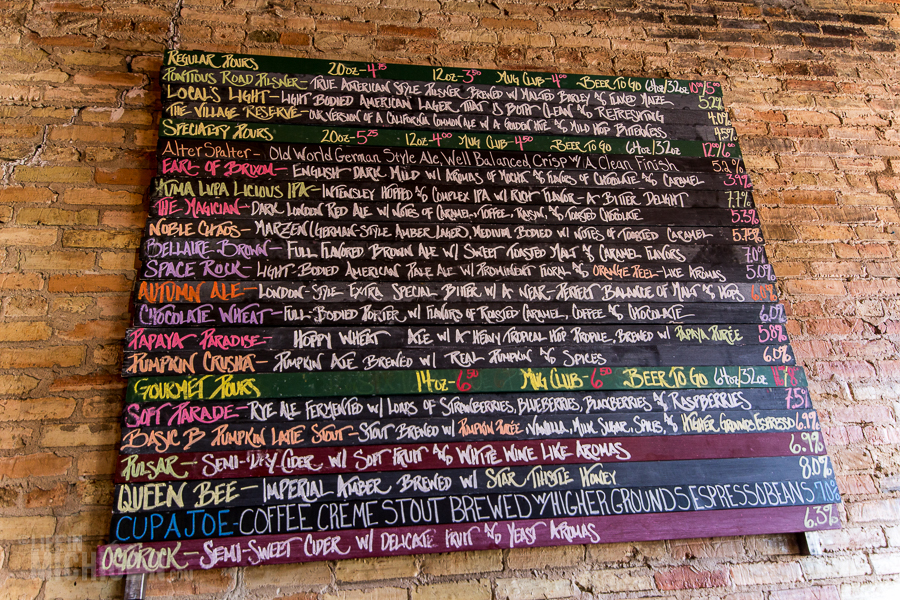 REGULAR POURS 20oz-4.75 12oz-3.50 MUG CLUB-4.00 BEER TO GO 64oz/32oz 10.00/5.00
PONTIOUS ROAD PILSNER- TRUE AMERICAN STYLE PILSNER BREWED W/ MALTED BARLEY & FLAKED MAIZE 5.2%
LOCAL'S LIGHT- LIGHT BODIED AMERICAN LAGER THAT IS BOTH CLEAN & REFRESHING 4.0%
THE VILLAGE RESERVE- OUR VERSION OF A CALIFORNIA COMMON ALE W/ A GOLDEN HUE & MILD HOP BITTERNESS 4.5%
SPECIALTY POURS 20oz-5.25 12oz-4.00 MUG CLUB-4.50 BEER TO GO 64oz/32oz 12.00/6.00
ALTER SPALTER- OLD WORLD GERMAN STYLE ALE, WELL BALANCED CRISP W/ A CLEAN FINISH
EARL OF BRIXUM- ENGLISH DARK MILD W/ AROMAS OF MOCHA & FLAVORS OF CHOCOLATE & CARAMEL 3.9%
HUMA LUPA LICIOUS IPA- INTENSLEY HOPPED & COMPLEX IPA W/ RICH FLAVOR- A BITTER DELIGHT 7.7%
THE MAGICIAN- DARK LONDON RED ALE W/ NOTES OF CARAMEL, TOFFEE, RAISIN, & TOASTED CHOCOLATE 5.3%
NOBLE CHAOS- MARZEN (GERMAN-STYLE AMBER LAGER), MEDIUM BODIED W/ NOTES OF TOASTED CARAMEL 5.75%
BELLAIRE BROWN- FULL FLAVORED BROWN ALE W/ SWEET TOASTED MALT & CARAMEL FLAVORS 7.0%
SPACE ROCK- LIGHT-BODIED AMERICAN PALE ALE W/ PROMINENT FLORAL & ORANGE PEEL-LIKE AROMAS 5.0%
AUTUMN ALE- LONDON-STYLE EXTRA SPECIAL BITTER W/ A NEAR-PERFECT BALANCE OF MALT & HOPS 6.0%
CHOCOLATE WHEAT- FULL-BODIED PORTER W/ FLAVORS OF ROASTED CARAMEL, COFFEE & CHOCOLATE 6.0%
PAPAYA PARADISE- HOPPY WHEAT ALE W/ A HEAVY TROPICAL HOP PROFILE, BREWED W/ PAPAYA PURÉE 5.8%
PUMPKIN CRUSHA- PUMPKIN ALE BREWED W/ REAL PUMPKIN & SPICES 6.0%
GOURMET POURS 14oz-6.50 MUG CLUB-6.50 BEER TO GO 64oz/32oz
SOFT PARADE- RYE ALE FERMENTED W/ LOADS OF STRAWBERRIES, BLUEBERRIES, BLACKBERRIES & RASPBERRIES 7.5%
BASYC B PUMPKIN LATTE STOUT- STOUT BREWED W/ PUMPKIN PURÉE, VANILLA, MILK SUGAR, SPICES, & HIGHER GROUNDS ESPRESSO 6.9%
PULSAR- SEMI-DRY CIDER W/ SOFT FRUIT & WHITE WINE LIKE AROMAS 6.9%
QUEEN BEE- IMPERIAL AMBER BREWED W/ STAR THISTLE HONEY 8.0%
CUP A JOE- COFFEE CREME STOUT BREWED W/ HIGHER GROUNDS ESPRESSO BEANS 7.0%
OCTOROCK- SEMI-SWEET CIDER W/ DELICATE FRUIT & YEAST AROMAS 6.3%